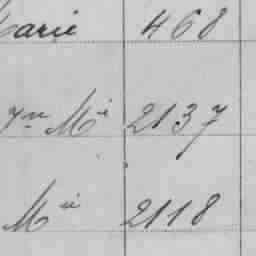 Marie 468
Jn Mie 2137
Mie 2118